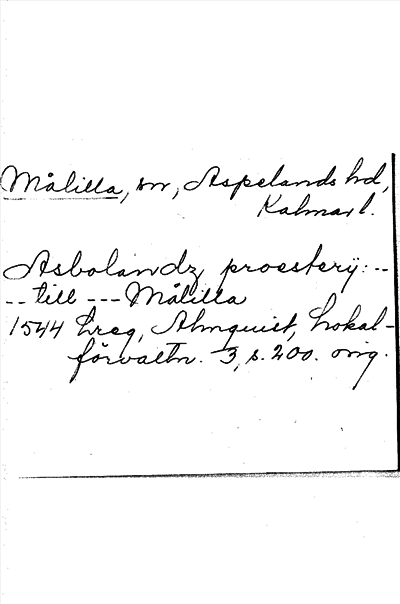 Målilla, sn, Aspelands hd,
Kalmar l.
Asbolandz proestery: --
-- till --- Målilla
1544 hreg, Almquist, Lokal-
förvaltn. 3, s. 200. orig.